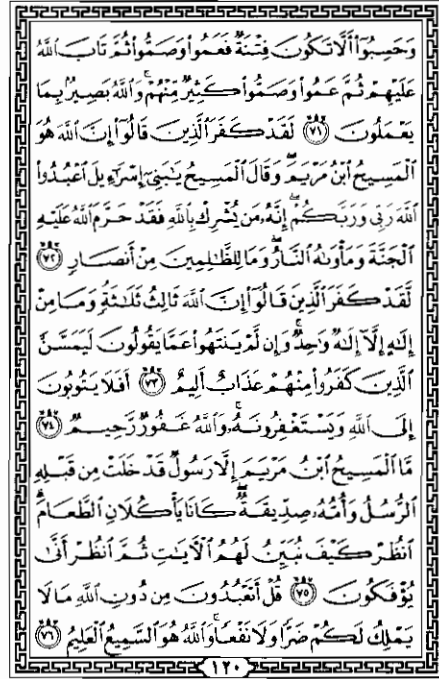 وَحَسِبُوٓا۟ أَلَّا تَكُونَ فِتْنَةٌ فَعَمُوا۟ وَصَمُّوا۟ ثُمَّ تَابَ ٱللَّهُ
عَلَيْهِمْ ثُمَّ عَمُوا۟ وَصَمُّوا۟ كَثِيرٌ مِّنْهُمْ ۚ وَٱللَّهُ بَصِيرٌۢ بِمَا
يَعْمَلُونَ ٧١ لَقَدْ كَفَرَ ٱلَّذِينَ قَالُوٓا۟ إِنَّ ٱللَّهَ هُوَ
ٱلْمَسِيحُ ٱبْنُ مَرْيَمَ ۖ وَقَالَ ٱلْمَسِيحُ يَـٰبَنِىٓ إِسْرَٰٓءِيلَ ٱعْبُدُوا۟
ٱللَّهَ رَبِّى وَرَبَّكُمْ ۖ إِنَّهُۥ مَن يُشْرِكْ بِٱللَّهِ فَقَدْ حَرَّمَ ٱللَّهُ عَلَيْهِ
ٱلْجَنَّةَ وَمَأْوَىٰهُ ٱلنَّارُ ۖ وَمَا لِلظَّـٰلِمِينَ مِنْ أَنصَارٍ ٧٢
لَّقَدْ كَفَرَ ٱلَّذِينَ قَالُوٓا۟ إِنَّ ٱللَّهَ ثَالِثُ ثَلَـٰثَةٍ ۘ وَمَا مِنْ
إِلَـٰهٍ إِلَّآ إِلَـٰهٌ وَٰحِدٌ ۚ وَإِن لَّمْ يَنتَهُوا۟ عَمَّا يَقُولُونَ لَيَمَسَّنَّ
ٱلَّذِينَ كَفَرُوا۟ مِنْهُمْ عَذَابٌ أَلِيمٌ ٧٣ أَفَلَا يَتُوبُونَ
إِلَى ٱللَّهِ وَيَسْتَغْفِرُونَهُۥ ۚ وَٱللَّهُ غَفُورٌ رَّحِيمٌ ٧٤
مَّا ٱلْمَسِيحُ ٱبْنُ مَرْيَمَ إِلَّا رَسُولٌ قَدْ خَلَتْ مِن قَبْلِهِ
ٱلرُّسُلُ وَأُمُّهُۥ صِدِّيقَةٌ ۖ كَانَا يَأْكُلَانِ ٱلطَّعَامَ ۗ
ٱنظُرْ كَيْفَ نُبَيِّنُ لَهُمُ ٱلْـَٔايَـٰتِ ثُمَّ ٱنظُرْ أَنَّىٰ
يُؤْفَكُونَ ٧٥ قُلْ أَتَعْبُدُونَ مِن دُونِ ٱللَّهِ مَا لَا
يَمْلِكُ لَكُمْ ضَرًّا وَلَا نَفْعًا ۚ وَٱللَّهُ هُوَ ٱلسَّمِيعُ ٱلْعَلِيمُ ٧٦
١٢٠